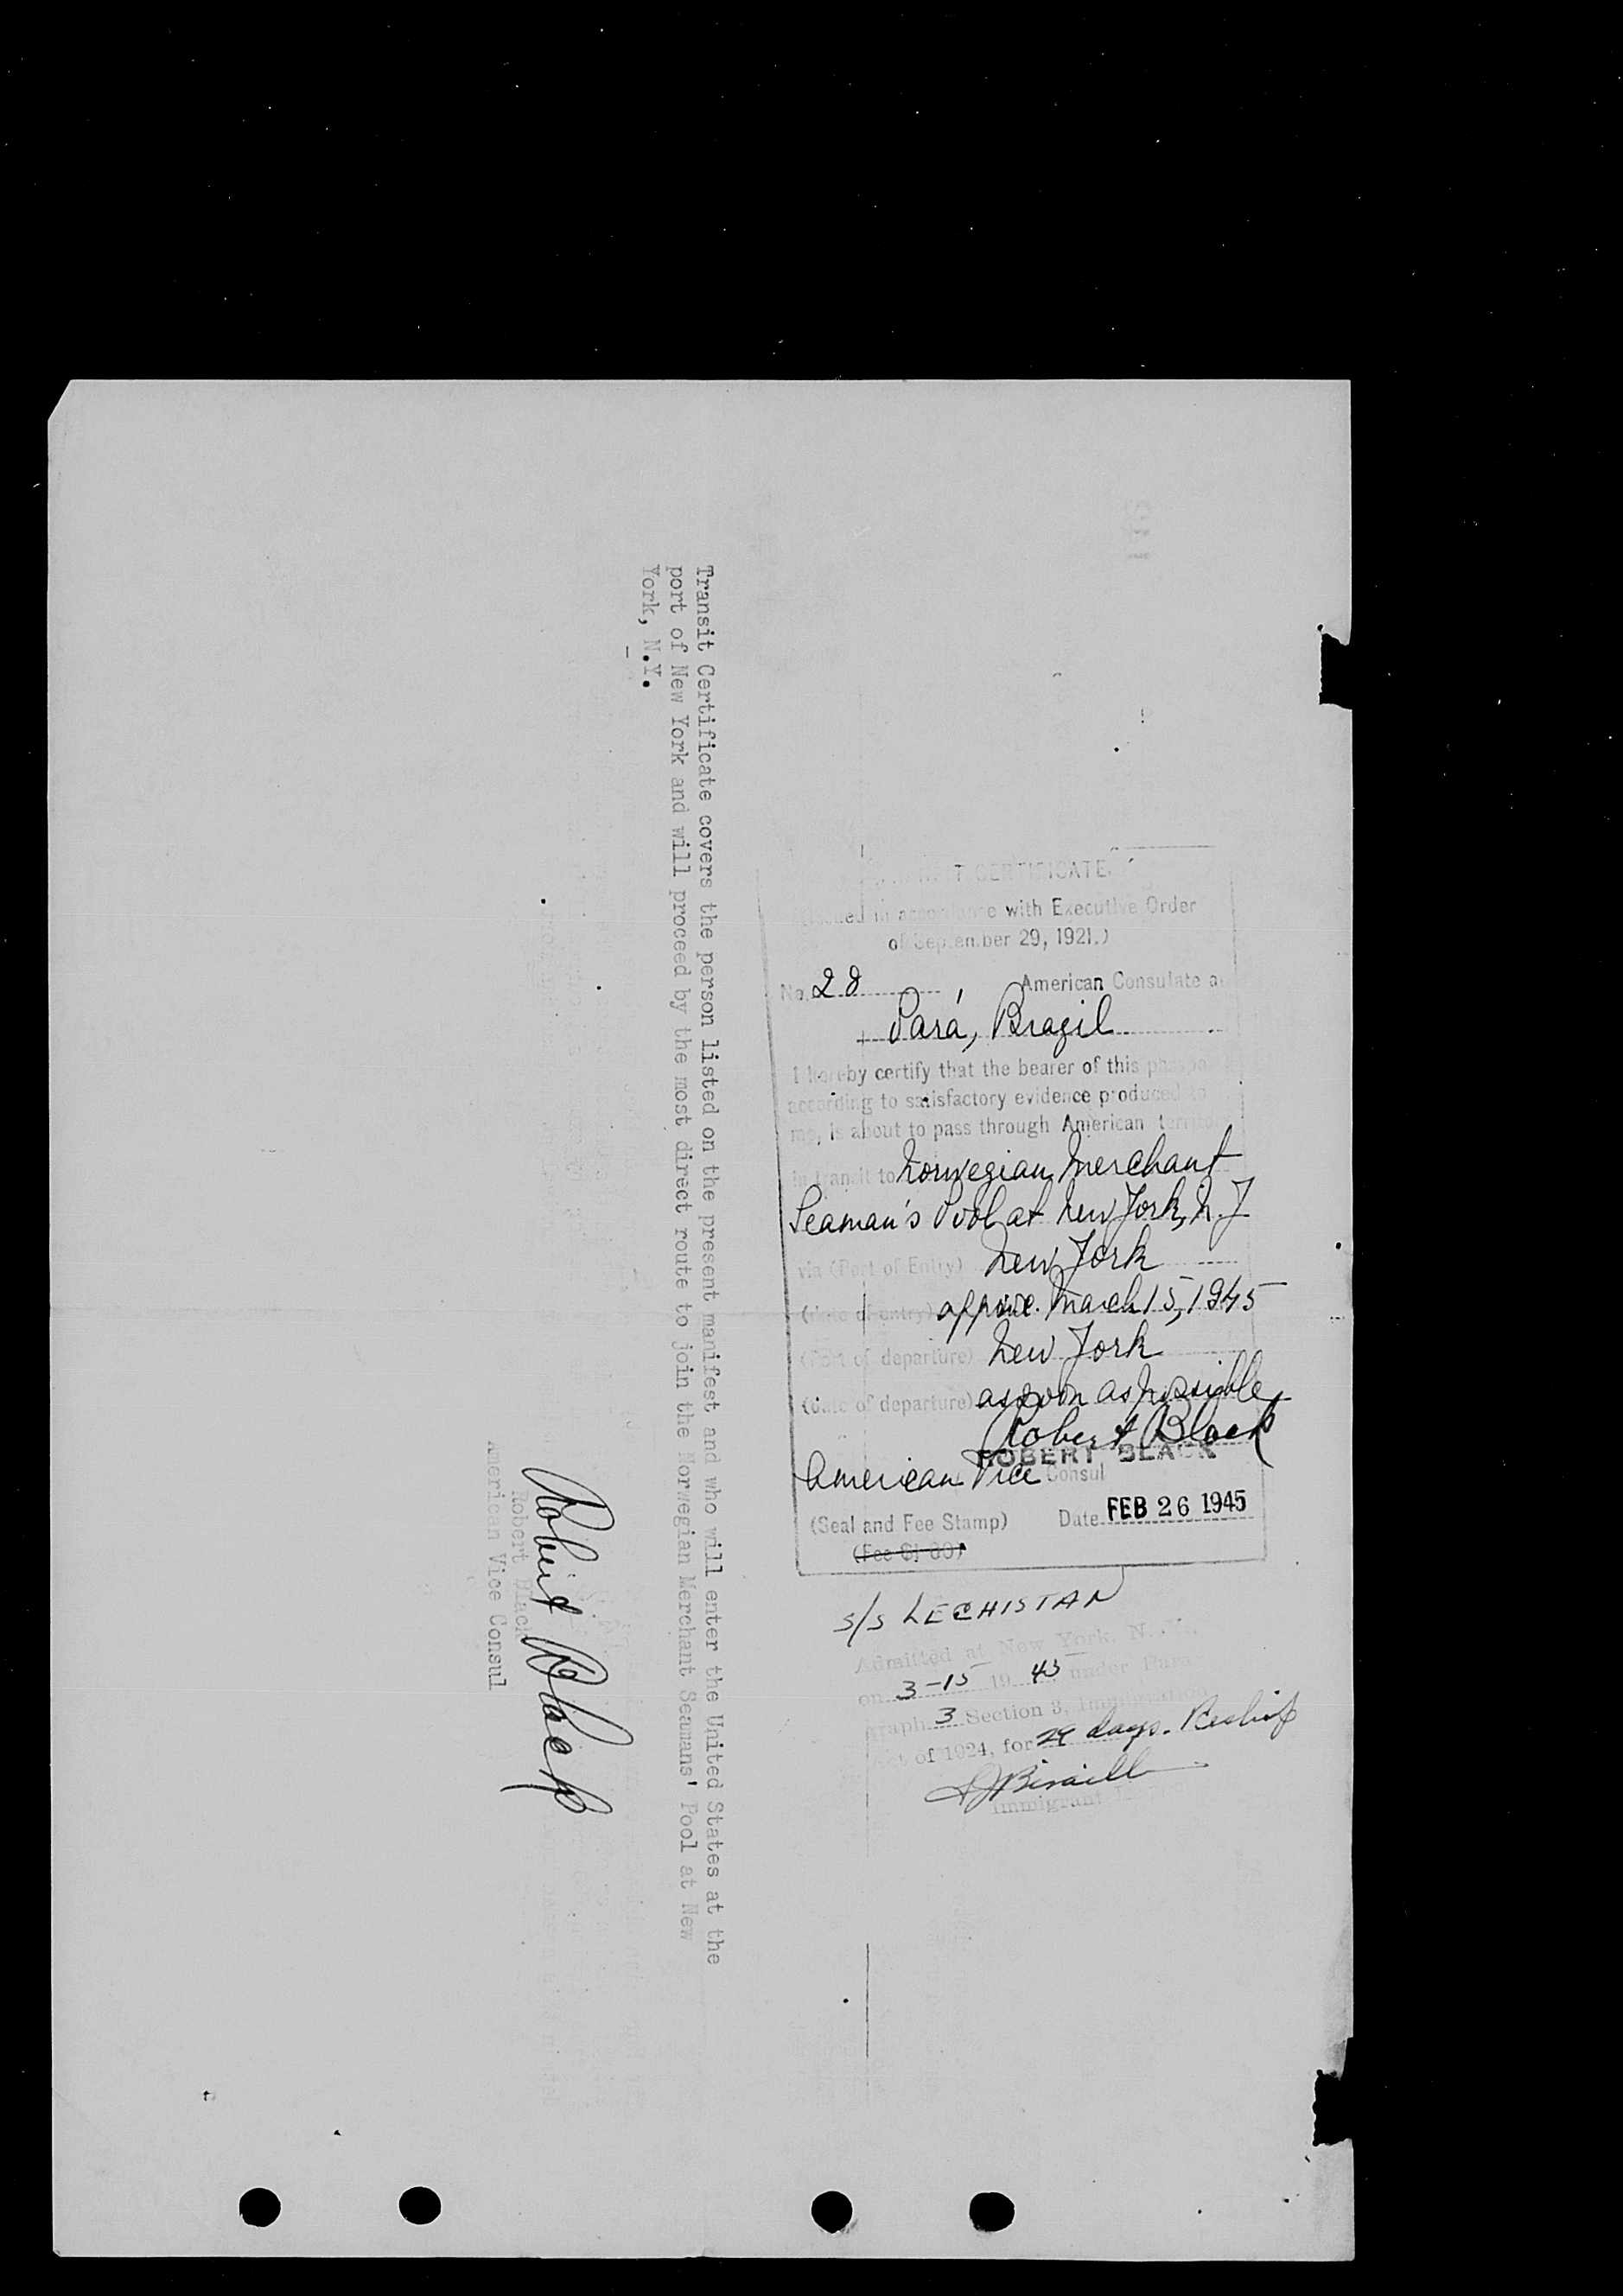 Transit Certificate covers the person listed on the present manifest and who will enter the United States at the
port of New York and will proceed by the most direct route to join the Norwegian Merchant Seamans' Pool at New
York, N.Y.
Robert Black
Robert Black
American Vice Consul
TRANSIT CERTIFICATE
(Issued in accordance with Executive Order
of September 29, 1921.)
No. 28 American Consulate at
Pará, Brazil
I hereby certify that the bearer of this passport
according to satisfactory evidence produced to
me, is about to pass through American territory
in transit to Norwegian Merchant
Seaman's Pool at New York, N.Y
via (Port of Entry) New York
(date of entry) approx. March 15, 1945
(Port of departure) New York
(date of departure) as soon as possible
Robert Black
ROBERT BLACK
American Vice Consul
(Seal and Fee Stamp) Date FEB 26 1945
(Fee $1.00)
S/S LECHISTAN
Admitted at New York, N.Y.,
on 3-15 19 45 under Para-
graph 3 Section 3, Immigration
Act of 1924, for 29 days. Reship
Immigrant